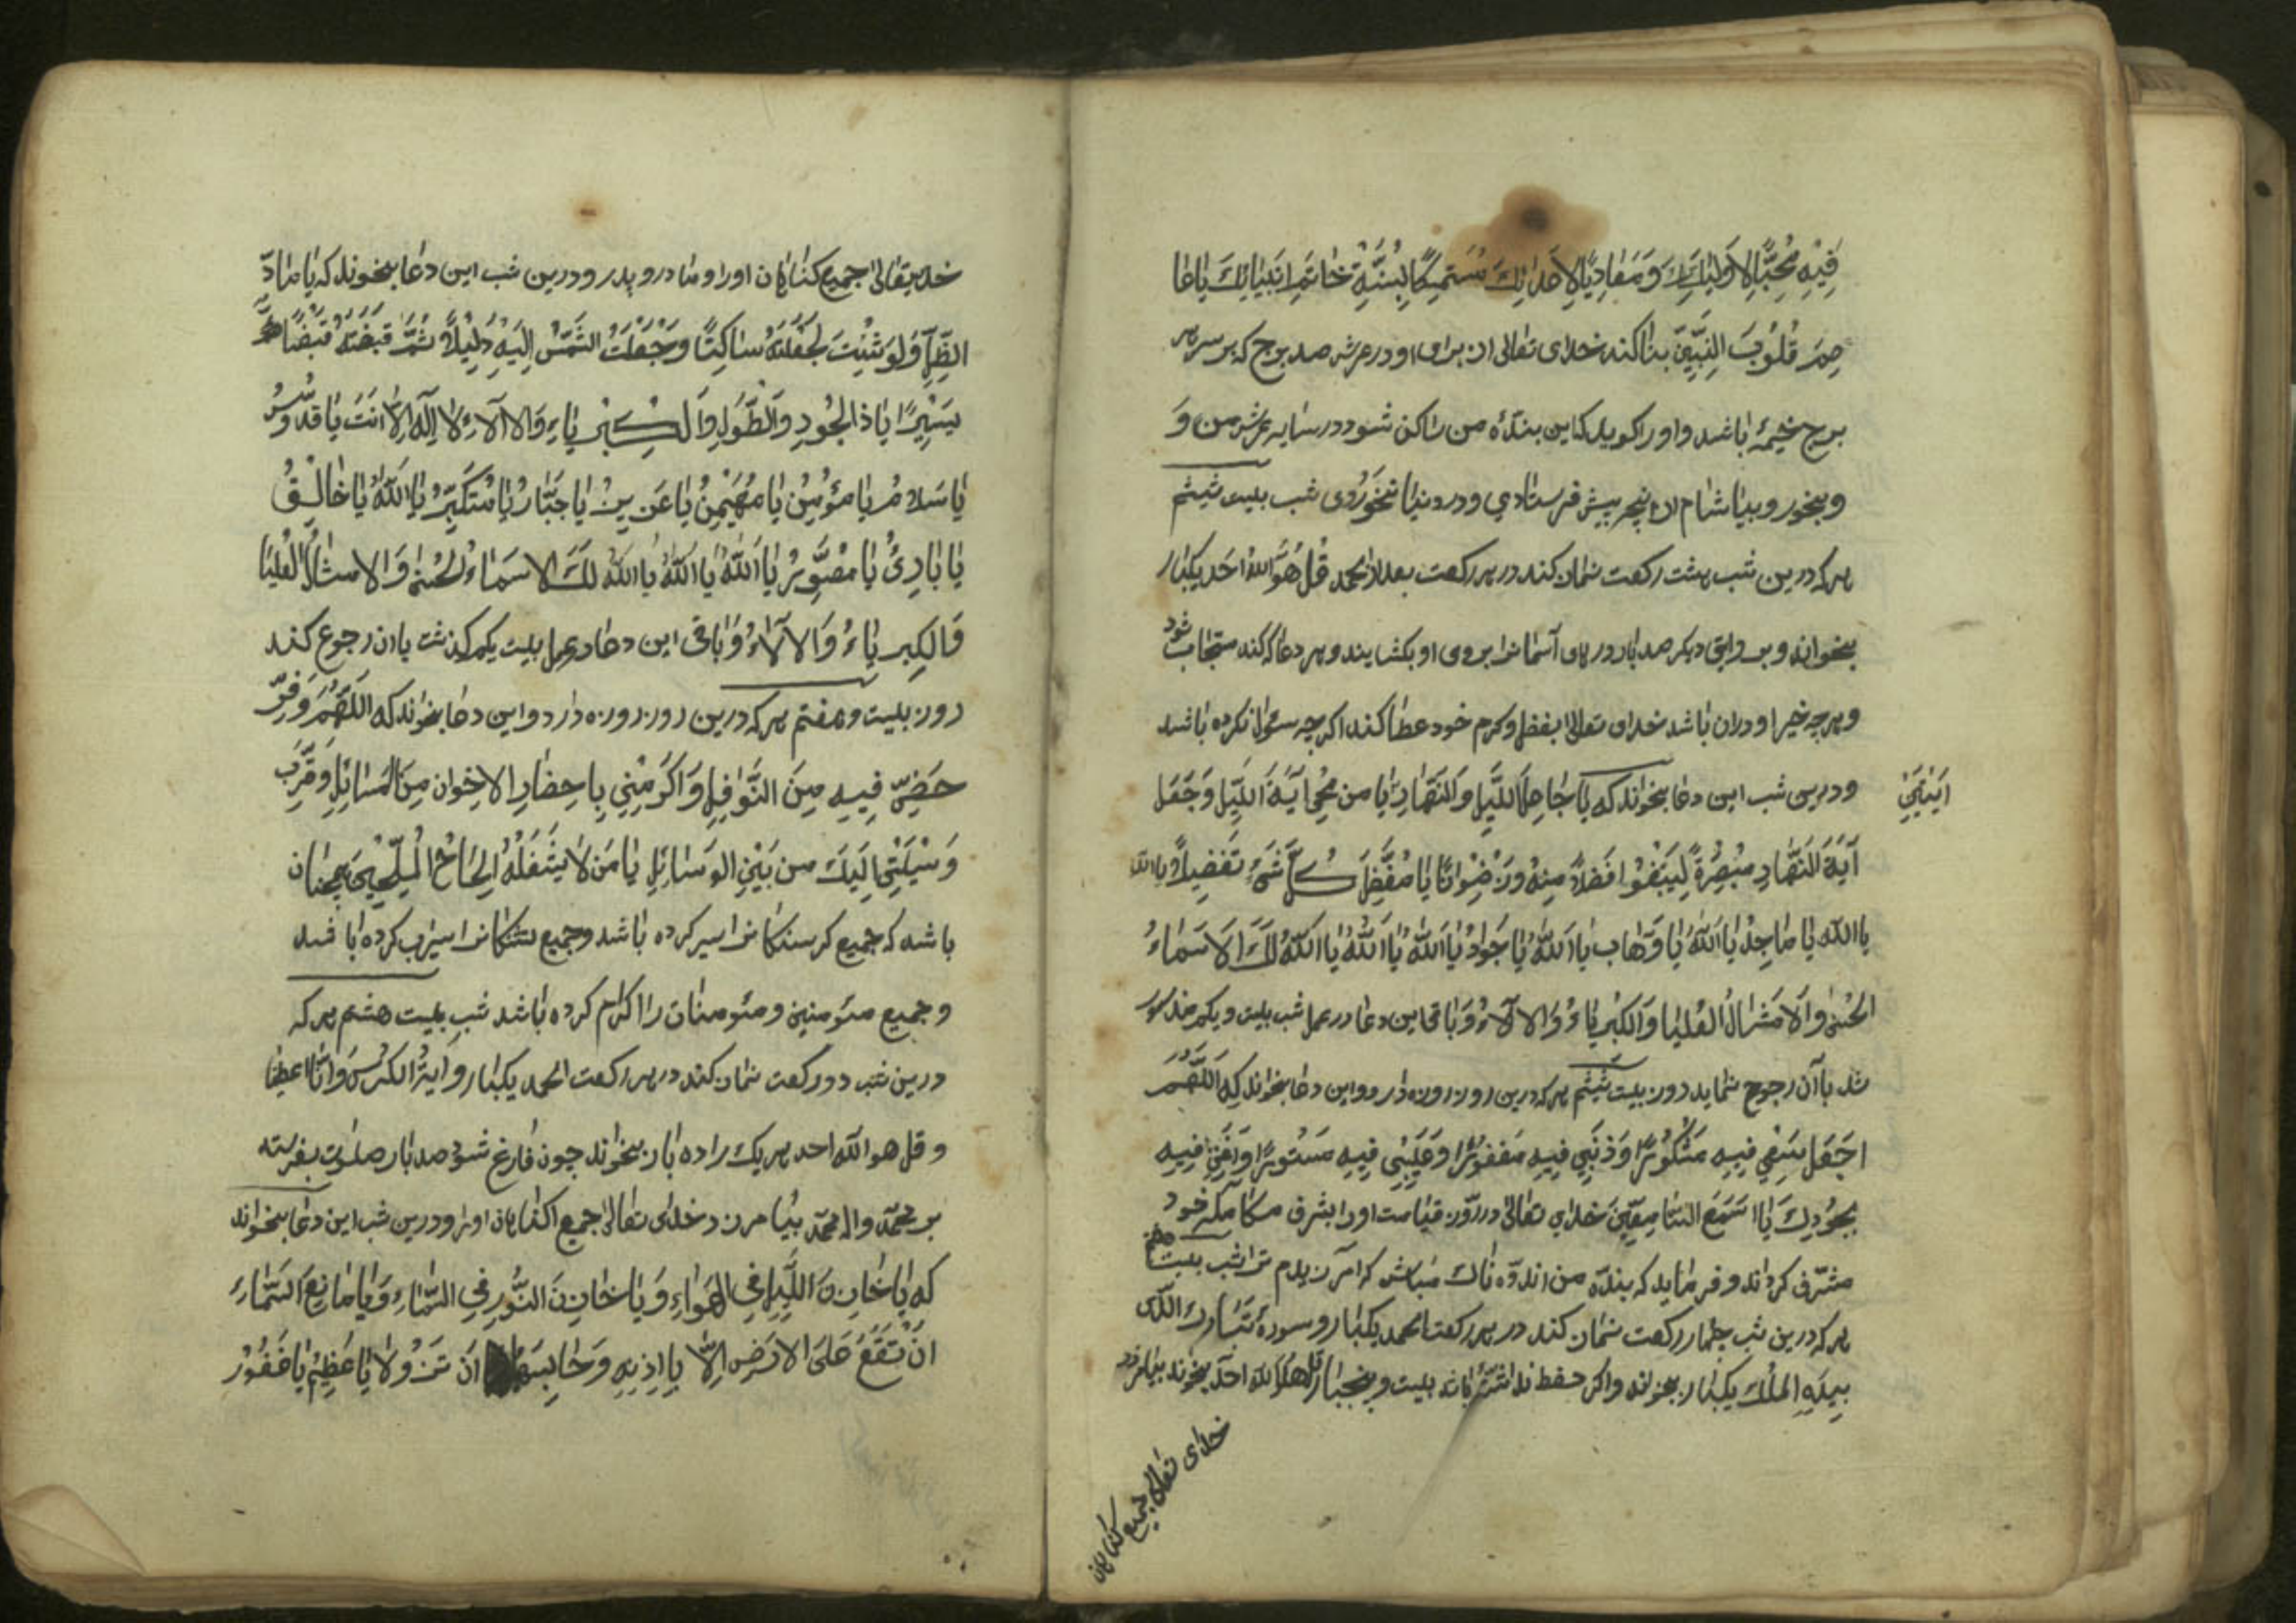 فِيْهِ مُحِبًّا لِاَوْلِيَائِكَ وَمُعَادِيًا لِاَعْدَائِكَ مُسْتَمِسِكًا بِسُنَّةِ خَاتَمِ اَنْبِيَائِكَ يَاعَا
صِمَ قُلُوْبَ النَّبِيّٖنَ بناكند خداى تعالى از براى او در عرش صد برج كه بر سر هر
برج خيمهٔ باشد واورا كويد كه اين بندهٔ من ساكن شو در سايه عرش من وَ
وبخور وبياشام از انچه پيش فرستادي ودر دنيا نخوَردى شب بيست ششم
هر كه درين شب هشت ركعت نماز كند در هر ركعت بعد از الحمد قُل هُوَ اللهُ اَحَد يكبار
بخواند وبروايتى ديكر صدبار درهاى آسمانرا بروى او بكشايند وهر دعا كه كند مستجاب شود
وهرچه خير او دران باشد خداى تعالى بفضل وكرم خود عطا كند اكرچه سئوال نكرده باشد
ودرين شب اين دعا بخواند كه يَا جَاعِلَ اللَّيْلِ وَالنَّهَارِ اٰيَتَيْنِ يَا من مُحِىَ آيَةَ اللَّيْلِ وَجَعَلَ
آيَةَ النَّهَارِ مُبْصِرَةً لِيَبْتَغُوْا فَضْلاً مِنْهُ وَرِضْوَانًا يَا مُفَصِّلَ كُلِّ شَىْءٍ تَفْصِيلاً يا الله
يا الله يَا مَاجِدُ يَا اَللهُ يَا وَهَّاب يَا اَللهُ يَا جَوَادُ يَا اَللهُ يَا اَللهُ يَا اَللهُ لَكَ الاَسْمَاءُ
الحُسْنٰى وَالْاَمْثَالُ الْعُلْيَا وَالكِبْرِيَاءُ وَالاٰلَاءُ وَباقى اين دعا در عمل شب بيست ويكم مذكور
شد باآن رجوع نمايد روز بيست ششم هر كه درين روز روزه دارد واين دعا بخواند كه اَللّٰهُمَّ
اجْعَل سَعْيِي فِيهِ مَشْكُوْرًا وَذَنْبِي فِيهِ مَغْفُوْرًا وَعَيْبِيْ فِيهِ مَسْتُورًا وَ فِيهِ
بِجُوْدِكَ يَا اَسْمَعَ السَّامِعِيْنَ خداي تعالى در روز قيامت اورا بشرف مكالمه خود
مشرّف كرداند وفرمايد كه بنده من اندوه ناك مباش كه امرزيدم ترا شب بيست هفتم
هر كه درين شب چهار ركعت نماز كند در هر ركعت الحمد يكبار وسورهٔ تَبَارك الَّذى
بِيَدِهِ المُلْك يكبار بخواند واكر حفظ نداشته باشد بيست وپنجبار قل هُوَ الله اَحَد بخواند بيامرزد
خداى تعالى جميع كناهان
خديتعالى جميع كناهان اورا ومادر وپدر ودرين شب اين دعا بخواند كه يَا مَادَّ
الظِّلِّ وَلَو شِئْتَ لَجَعَلْتَهُ سَاكِنًا وَجَعَلْتَ الشَّمْسَ اِلَيْهِ دَلِيْلاً ثُمَّ قَبَضْتَهُ قَبْضًا
يَسِيْرًا يَا ذَا الجُوْدِ وَالطَّوْلِ وَالْكِبْرِيَاءِ وَالاٰلَاءِ لَا اِلٰهَ اِلَّا اَنْتَ يَا قُدُّوْسُ
يَا سَلَامُ يَا مُؤْمِنُ يَا مُهَيْمِنُ يَا عَزِيزُ يَا جَبَّارُ يَا مُتَكَبِّرُ يَا اَللهُ يَا خَالِقُ
يَا بَارِئُ يَا مُصَوِّرُ يَا اَللهُ يَا اَللهُ يَا اَللهُ لَكَ الاسْمَاءُ الحُسْنٰى وَالامْثَالُ الْعُلْيَا
وَالكِبرِيَاءُ وَالاٰلَاءُ وَباقى اين دعا در عمل بيست يكم كذشت بان رجوع كند
روز بيست وهفتم هر كه درين روز روزه دارد واين دعا بخواند كه اَللّٰهُمَّ وَفِّرْ
حَظِّيْ فِيهِ مِنَ النَّوَافِلِ وَاَكْرِمْنِي بِاحِضَارِ الاخوان مِنَ المَسَائِلِ وَقَرِّبَ
وَسِيْلَتِيْ اِلَيكَ من بَيْنِ الوَسَائِلِ يَا مَن لَا يَشْغَلُهُ اِلحَاحُ الْمُلِحِّيْنَ همچنان
باشد كه جميع كرسنكانرا سير كرده باشد وجميع تشنكانرا سيراب كرده باشد
وجميع مئومنين ومئومنات را اكرام كرده باشد شب بيست هشتم هر كه
درين شب دو ركعت نماز كند در هر ركعت الحمد يكبار واية الكرسى وانا اعطينا
وقل هو الله احد هر يك را ده بار بخواند چون فارغ شود صد بار صلوات بفرسته
بر محمّد وال محمّد بيامرزد خداى تعالى جميع كناهان اورا ودرين شب اين دعا بخواند
كه يَا خَازِنَ اللَّيْلِ فِي الهَوَاءِ وَيَا خَازِنَ النُّوْرِ فِي السَّمَاءِ وَيَا مَانِعَ السَّمَاءِ
اَنْ تَقَعَ عَلَى الارْضِ اِلَّا بِاِذنِهِ وَحَابِسَهُمَا اَنْ تَزُولَا يَا عَظِيْمُ يَا غَفُوْرُ